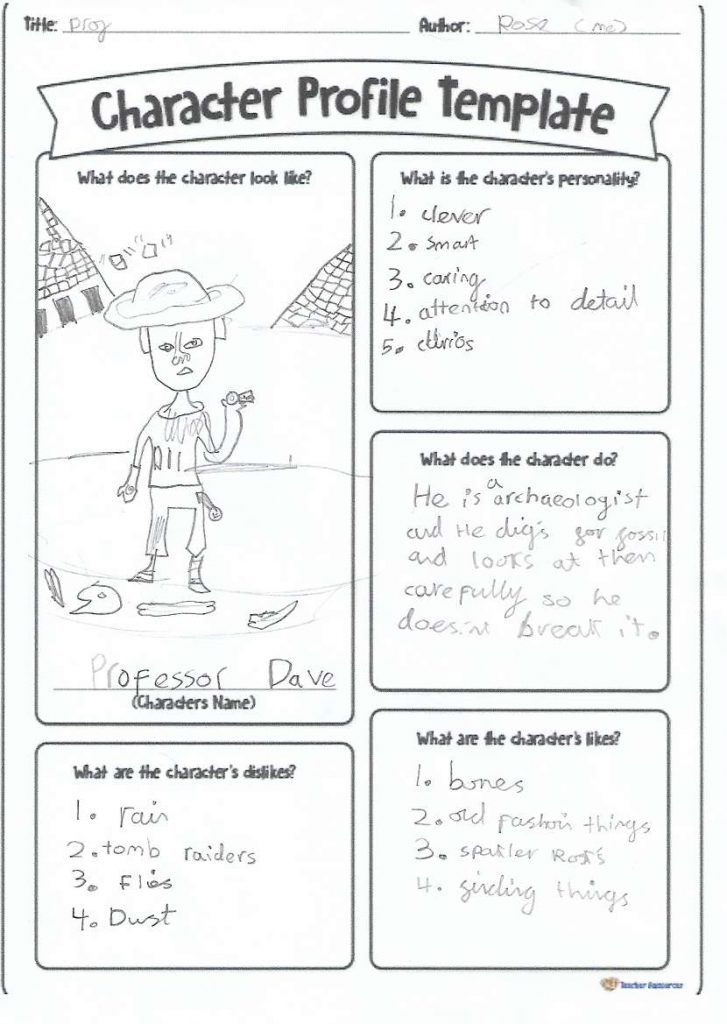 Title: Prof
Author: Rose (me)
Character Profile Template
What does the character look like?
Professor Dave
(Characters Name)
What is the character's personality?
1. clever
2. smart
3. caring
4. attention to detail
5.
What does the character do?
He is a archaeologist
and He dig's for fossil
and looks at them
carefully so he
doesn't break it.
What are the character's dislikes?
1. rain
2. tomb raiders
3. Flies
4. Dust
What are the character's likes?
1. bones
2. old fashoin things
3.
4. finding things
Teacher Resources